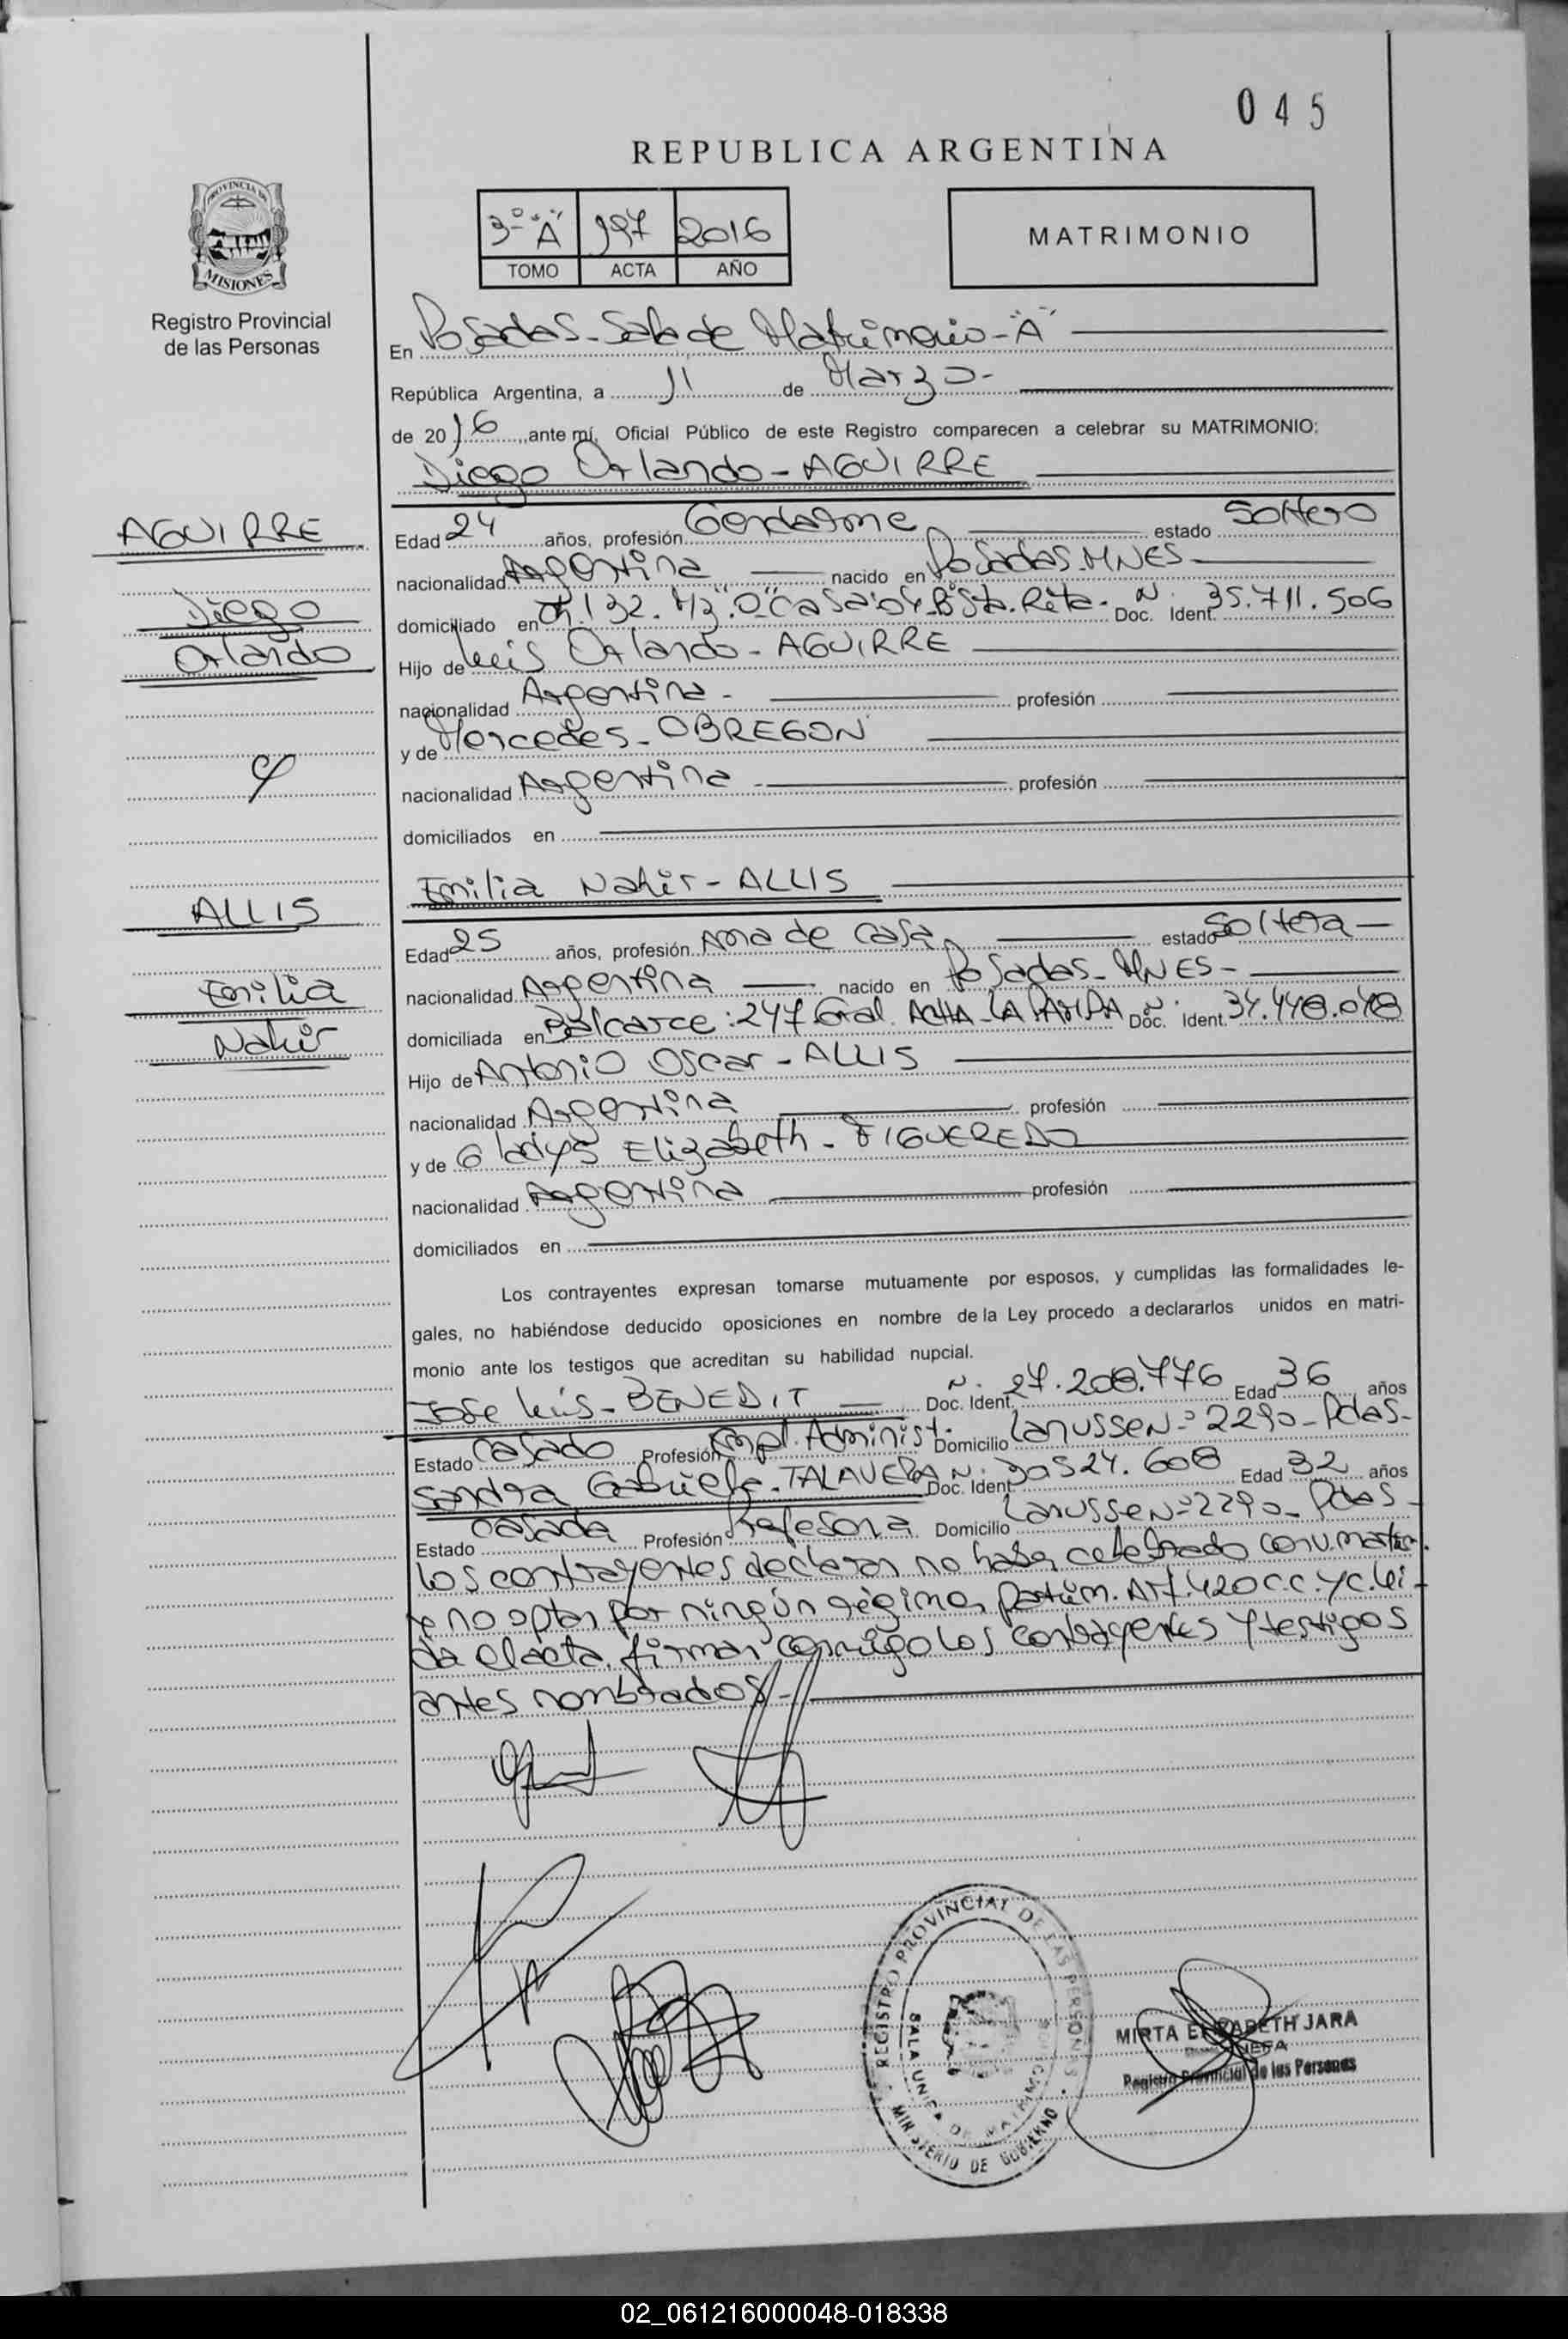 045
REPUBLICA ARGENTINA
3º "A" 197 2016
TOMO ACTA AÑO
MATRIMONIO
PROVINCIA DE
MISIONES
Registro Provincial
de las Personas
En Posadas - Sala de Matrimonio - "A"
República Argentina, a 11 de Marzo -
de 2016, ante mí, Oficial Público de este Registro comparecen a celebrar su MATRIMONIO:
Diego Orlando - AGUIRRE
AGUIRRE
Diego
Orlando
y
Edad 24 años, profesión Gendarme estado Soltero
nacionalidad Argentina nacido en Posadas. MNES -
domiciliado en Ch. 132. Mz. "O" Casa: 04 - Bº Sta. Rita - Doc. Ident. Nº 35.711.506
Hijo de Luis Orlando - AGUIRRE
nacionalidad Argentina - profesión
y de Mercedes - OBREGON
nacionalidad Argentina - profesión
domiciliados en
Emilia Nahir - ALLIS
ALLIS
Emilia
Nahir
Edad 25 años, profesión Ama de Casa estado Soltera -
nacionalidad Argentina nacido en Posadas - MNES -
domiciliada en Balcarce: 247 Gral. ACHA - LA PAMPA Doc. Ident. Nº 34.448.048
Hijo de Antonio Oscar - ALLIS
nacionalidad Argentina profesión
y de Gladys Elizabeth - FIGUEREDO
nacionalidad Argentina profesión
domiciliados en
Los contrayentes expresan tomarse mutuamente por esposos, y cumplidas las formalidades le-
gales, no habiéndose deducido oposiciones en nombre de la Ley procedo a declararlos unidos en matri-
monio ante los testigos que acreditan su habilidad nupcial.
Jose Luis - BENEDIT Doc. Ident. Nº 27.208.776 Edad 36 años
Estado Casado Profesión Empl. Administ. Domicilio Lanusse Nº 2290 - Pdas -
Sandra Gabriela - TALAVERA Doc. Ident. Nº 30524.608 Edad 32 años
Estado Casada Profesión Profesora Domicilio Lanusse Nº 2290 - Pdas -
Los contrayentes declaran no haber celebrado conv. matrim.
e no optan por ningún régimen patrim. Art. 420 C.C. y C. Leí-
da el acta, firman conmigo los contrayentes y testigos
antes nombrados -
REGISTRO PROVINCIAL DE LAS PERSONAS
SALA UNICA DE MATRIMONIO
MINISTERIO DE GOBIERNO
MIRTA ELIZABETH JARA
JEFA
Registro Provincial de las Personas
02_061216000048-018338